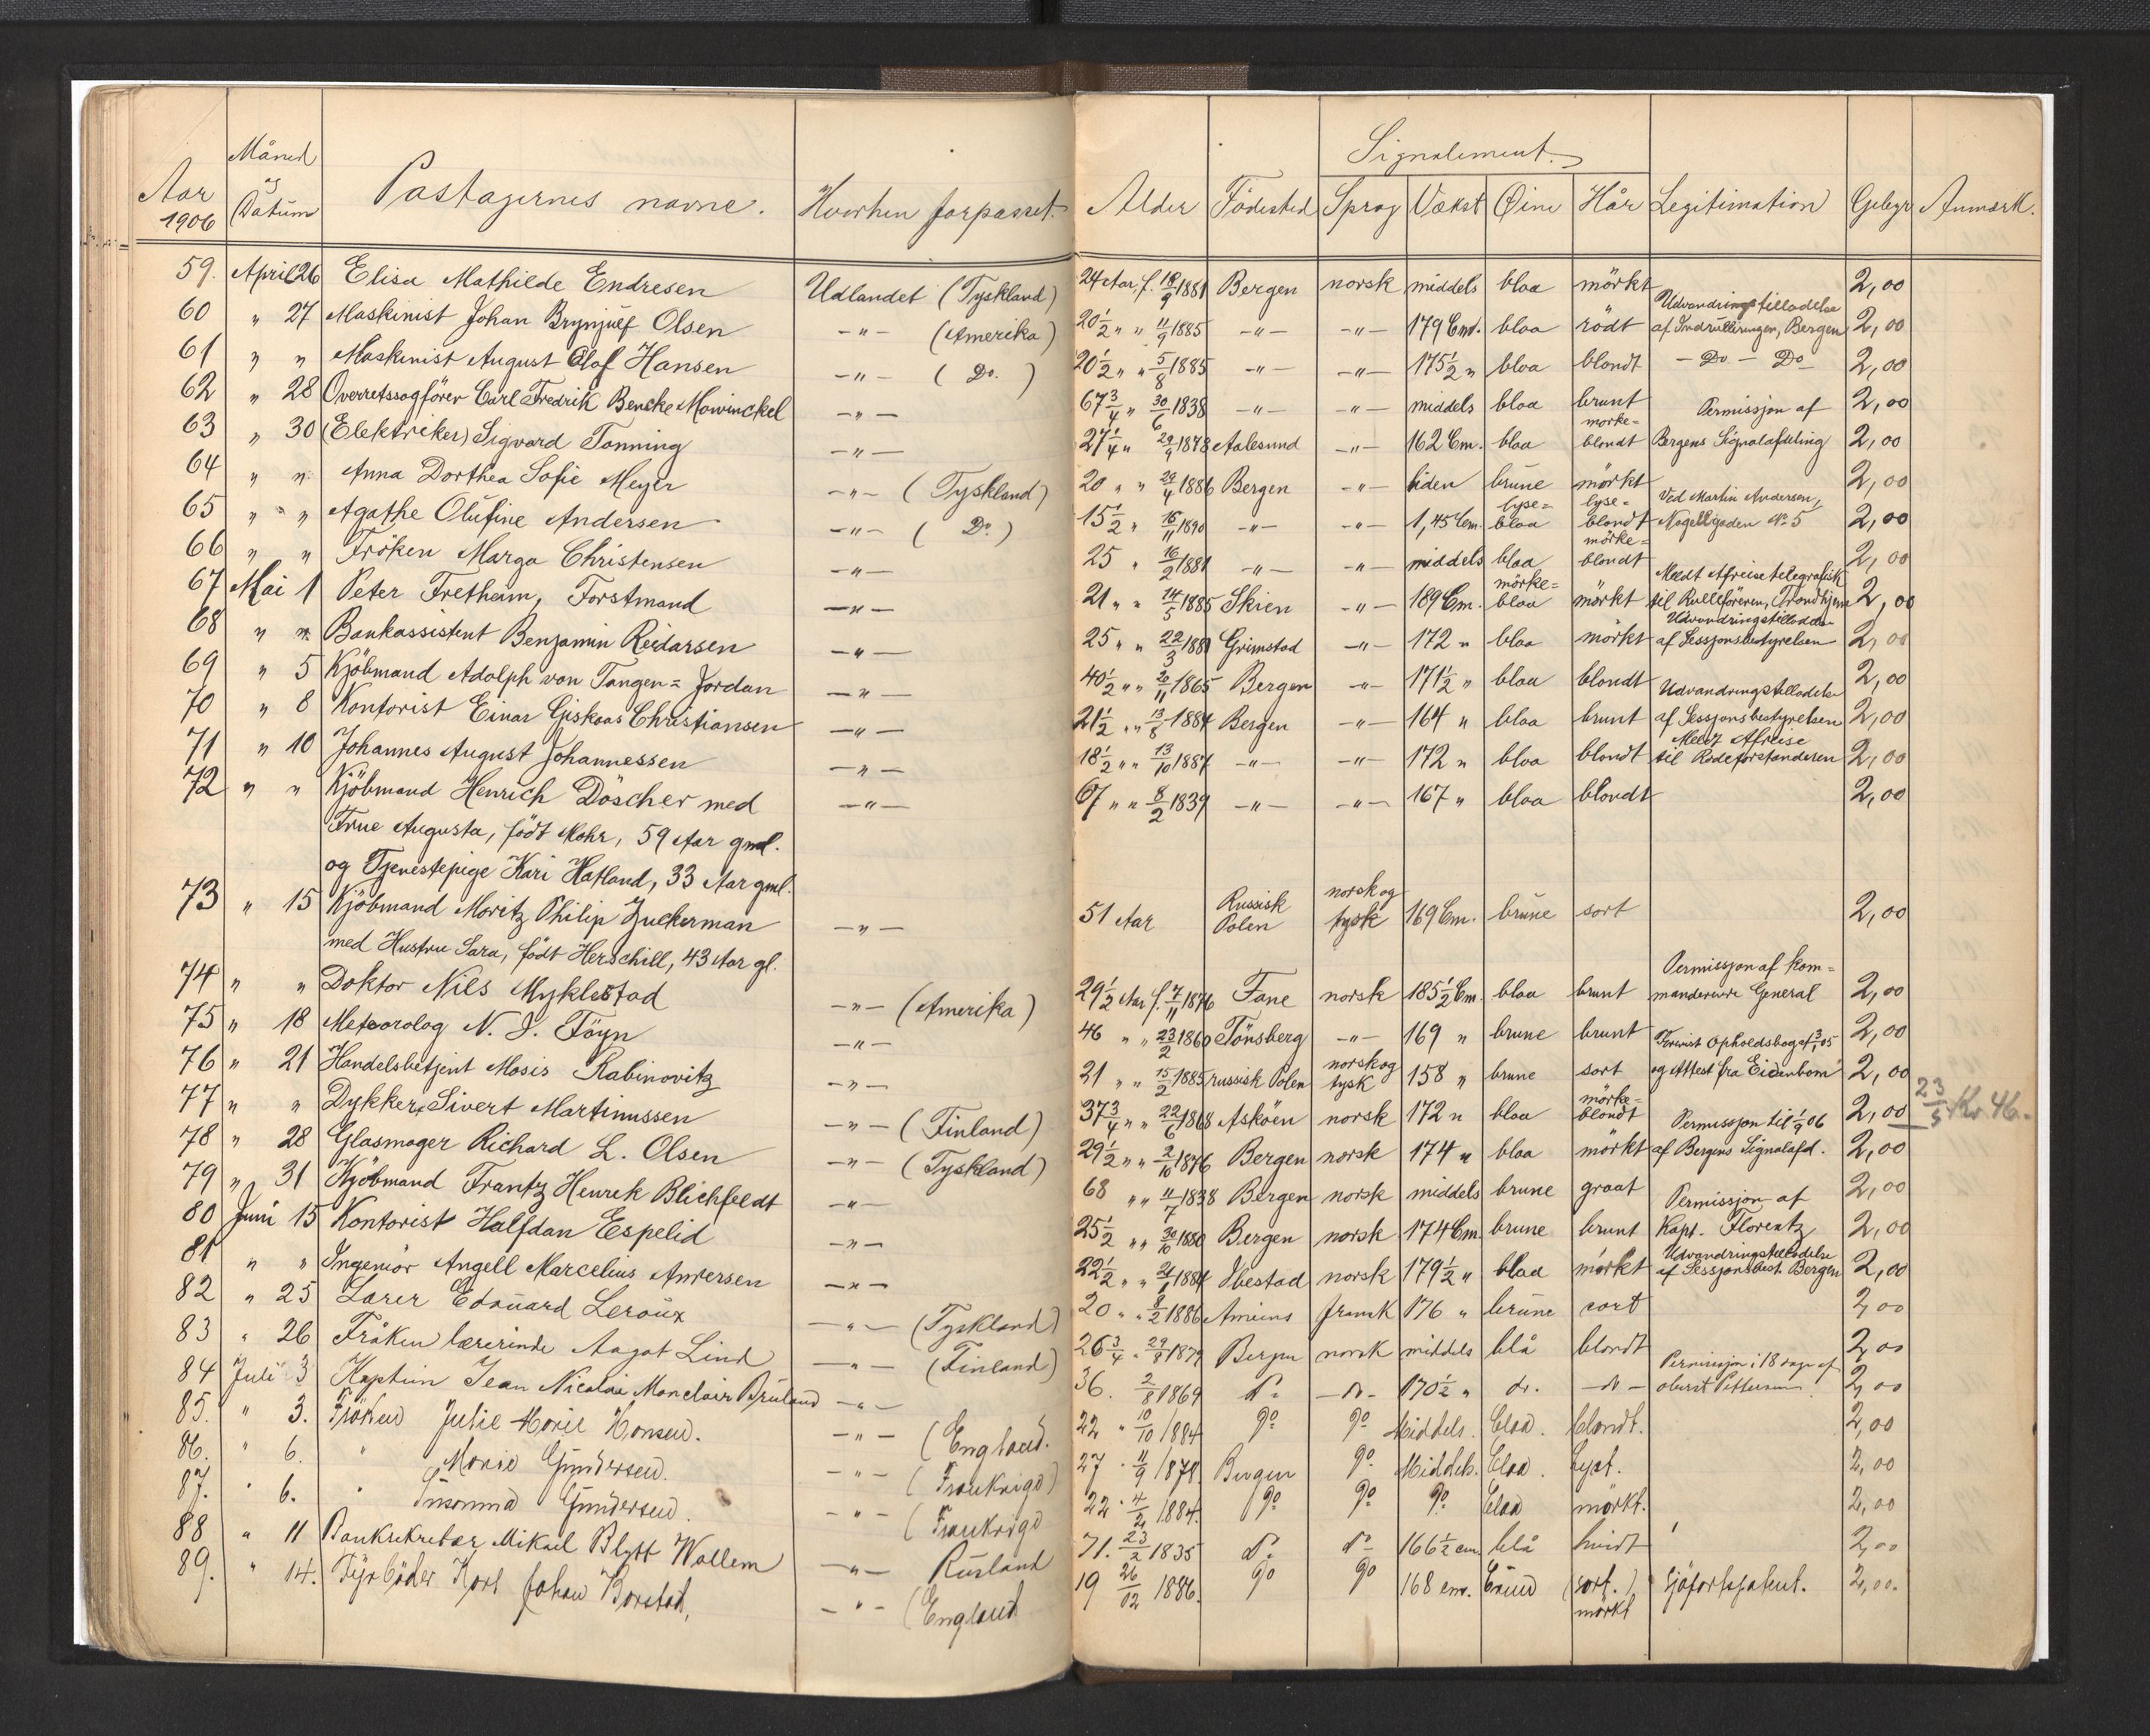 Måned
Aar og Passagernes navne. Hvorhen forpasset.
1906 Datum
59. April 26 Elisa Mathilde Endresen Udlandet (Tyskland)
60 " 27 Maskinist Johan Brynjulf Olsen -"- (Amerika)
61 " " Maskinist August Olaf Hansen -"- ( Do. )
62 " 28 Overretssagförer Carl Fredrik Bencke Mowinckel -"-
63 " 30 (Elektriker) Sigvard Tonning -"-
64 " " Anna Dorthea Sofie Meyer -"- (Tyskland)
65 " " Agathe Olufine Andersen -"- ( Do. )
66 " " Fröken Marga Christensen -"-
67 Mai 1 Peter Fretheim, Forstmand -"-
68 " " Bankassistent Benjamin Reidarsen -"-
69 " 5 Kjöbmand Adolph von Tangen = Jordan -"-
70 " 8 Kontorist Einar Giskaas Christiansen -"-
71 " 10 Johannes August Johannessen -"-
72 " " Kjöbmand Henrich Döscher med -"-
Frue Augusta, födt Mohr, 59 Aar gml.
og Tjenestepige Kari Hatland, 33 Aar gml.
73 " 15 Kjöbmand Moritz Philip Zuckerman -"-
med Hustru Sara, födt Herschill, 43 Aar gl.
74 " " Doktor Nils Myklestad -"- (Amerika)
75 " 18 Meteorolog N. J. Föyn -"-
76 " 21 Handelsbetjent Mosis Rabinovitz -"-
77 " " Dykker Sivert Martinussen -"- (Finland)
78 " 28 Glasmager Richard L. Olsen -"- (Tyskland)
79 " 31 Kjöbmand Frantz Henrik Blichfeldt -"-
80 Juni 15 Kontorist Halfdan Espelid -"-
81 " " Ingeniör Angell Marcelius Andersen -"-
82 " 25 Lærer Edouard Leroux -"- (Tyskland)
83 " 26 Fröken lærerinde Aagot Lind -"- (Finland)
84 Juli 3 Kaptein Jean Nicolai Monclair Bruland -"-
85. " 3. Fröken Julie Marie Hansen. -"- (England.
86. " 6. " Marie Gundersen. -"- (Frankrige)
87. " 6. " Gundersen. -"- (Frankrige
88 " 11 Banksekretær Mikael Blytt Wollem -"- Rusland
89. " 14. Fyrböder Karl Johan Borstad, -"- (England
Signalement.
Alder Födested Sprog Vækst Öine Hår Legitimation Gebyr Anmærk.
24 Aar f. 18/9 1881 Bergen norsk middels blaa mörkt 2,00
Udvandringstilladelse
20 1/2 " " 11/9 1885 -"- -"- 179 Cm. blaa rödt af Indrulleringen, Bergen 2,00
20 1/2 " " 5/8 1885 -"- -"- 175 1/2 " blaa blondt - Do - Do 2,00
67 3/4 " 30/6 1838 -"- -"- middels blaa brunt Permissjon af 2,00
mörke=
27 1/4 " 29/9 1878 Aalesund -"- 162 Cm. blaa blondt Bergens Signalafdeling 2,00
20 " " 29/4 1886 Bergen -"- liden brune mörkt 2,00
lyse= lyse= Ved Martin Andersen,
15 1/2 " 16/11 1890 -"- -"- 1,45 Cm. blaa blondt Nagelgaden No 5 2,00
mörke=
25 " 16/2 1881 -"- -"- middels blaa blondt 2,00
mörke= Meldt Afreise telegrafisk
21 " " 14/5 1885 Skien -"- 189 Cm. blaa mörkt til Rulleföreren, Trondhjem 2,00
Udvandringstilladelse
25 " " 22/3 1881 Grimstad -"- 172 " blaa mörkt af Sessjonsbestyrelsen 2,00
40 1/2 " " 20/11 1865 Bergen -"- 171 1/2 " blaa blondt 2,00
Udvandringstilladelse
21 1/2 " " 13/8 1884 Bergen -"- 164 " blaa brunt af Sessjonsbestyrelsen 2,00
Meldt Afreise
18 1/2 " " 13/10 1887 -"- -"- 172 " blaa blondt til Rodeforstanderen 2,00
67 " " 8/2 1839 -"- -"- 167 " blaa blondt 2,00
Russisk norsk og
51 Aar Polen tysk 169 Cm. brune sort 2,00
Permissjon af kom=
29 1/2 Aar f. 7/11 1876 Fane norsk 185 1/2 Cm. blaa brunt manderende General 2,00
46 " " 23/2 1860 Tönsberg -"- 169 " brune brunt 2,00
norsk og Forevist Opholdsbog af 3/1 05
21 " " 15/2 1885 russisk Polen tysk 158 " brune sort og Attest fra Eidenbom 2,00
mörke=
37 3/4 " " 22/6 1868 Asköen norsk 172 " blaa blondt Permissjon til 1/9 06 2,00 23/5 Kr 46.-
29 1/2 " " 2/10 1876 Bergen norsk 174 " blaa mörkt af Bergens Signalafd. 2,00
68 " " 11/7 1838 Bergen norsk middels brune graat 2,00
Permissjon af
25 1/2 " " 30/10 1880 Bergen norsk 174 Cm. brune brunt Kapt. Florentz 2,00
Udvandringstilladelse
22 1/2 " " 1884 Ibestad norsk 179 1/2 " blaa mörkt af Sessjonsbest. Bergen 2,00
20 " " 8/2 1886 Amiens fransk 176 " brune sort 2,00
26 3/4 " 29/8 1879 Bergen norsk middels blå blondt 2,00
Permisjon i 18 dage af
36. 2/8 1869 do - do - 170 1/2 " do. - do - oberst Pettersen 2,00
22 " 10/10 1884 Do Do Middels. blaa. blondt. 2,00
27 " 11/9 1878. Bergen Do Middels. blaa. lyst. 2,00
22 " 4/2 1884. Do Do Do blaa mörkt. 2,00
71. 23/2 1835 do do 166 1/2 cm. blå hvidt 2,00
19 26/12 1886. Do Do 168 cm. brune (sort.) Sjöfartspatent. 2,00.
mörkt